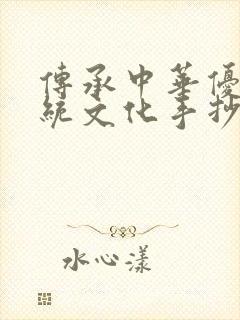 傳承中華優
統文化手抄
水心漾